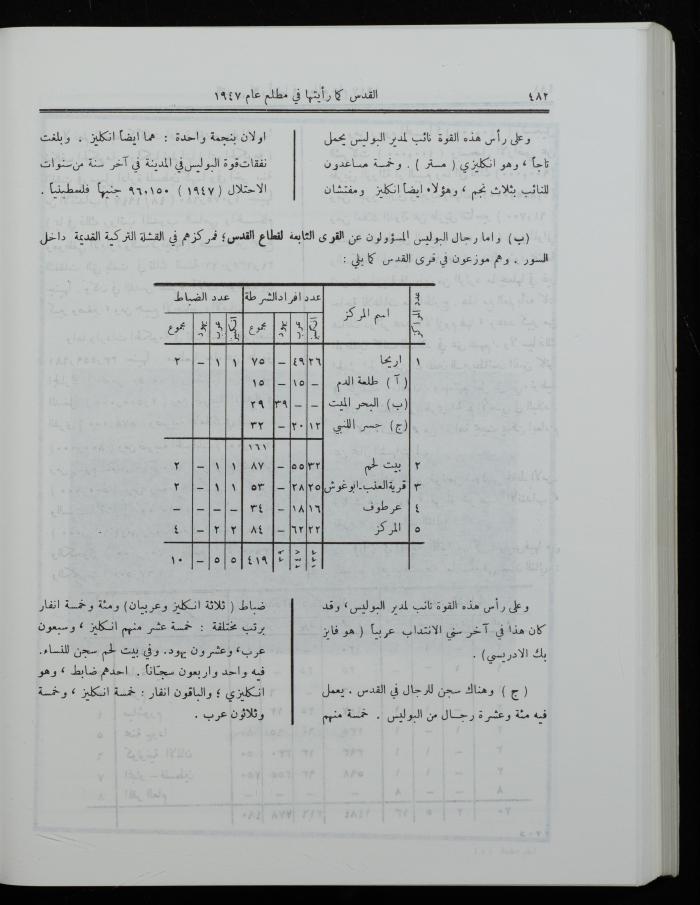 ٤٨٢
القدس كما رأيتها في مطلع عام ١٩٤٧
وعلى رأس هذه القوة نائب لمدير البوليس يحمل
تاجاً ، وهو انكليزي ( مستر ) . وخمسة مساعدون
للنائب بثلاث نجم ، وهؤلاء ايضاً انكليز ومفتشان
اولان بنجمة واحدة : هما ايضاً انكليز . وبلغت
نفقات قوة البوليس في المدينة في آخر سنة من سنوات
الاحتلال ( ١٩٤٧ ) ٩٦،١٥٠ جنيهاً فلسطينياً .
(ب) واما رجال البوليس المسؤولون عن القوى التابعة لقطاع القدس؛ فمركزهم في القشلة التركية القديمة داخل
السور . وهم موزعون في قرى القدس كما يلي :
عدد المراكز اسم المركز عدد افراد الشرطة عدد الضباط
انكليز عرب يهود مجموع انكليز عرب يهود مجموع
١ اريحا ٢٦ ٤٩ – ٧٥ ١ ١ – ٢
( آ ) طلعة الدم – ١٥ – ١٥
(ب) البحر الميت – – ٣٩ ٣٩
(ج) جسر اللنبي ١٢ ٢٠ – ٣٢
١٦١
٢ بيت لحم ٣٢ ٥٥ – ٨٧ ١ ١ – ٢
٣ قرية العنب-ابوغوش ٢٥ ٢٨ – ٥٣ ١ ١ – ٢
٤ عرطوف ١٦ ١٨ – ٣٤ – – – –
٥ المركز ٢٢ ٦٢ – ٨٤ ٢ ٢ – ٤
١٣٣ ٢٤٧ ٣٩ ٤١٩ ٥ ٥ – ١٠
وعلى رأس هذه القوة نائب لمدير البوليس، وقد
كان هذا في آخر سني الانتداب عربياً ( هو فايز
بك الادريسي ) .
( ج ) وهناك سجن للرجال في القدس . يعمل
فيه مئة وعشرة رجال من البوليس . خمسة منهم
ضباط ( ثلاثة انكليز وعربيان) ومئة وخمسة انفار
برتب مختلفة : خمسة عشر منهم انكليز ، وسبعون
عرب، وعشرون يهود. وفي بيت لحم سجن للنساء.
فيه واحد واربعون سجّاناً . احدهم ضابط ، وهو
انكليزي ؛ والباقون انفار : خمسة انكليز ، وخمسة
وثلاثون عرب .